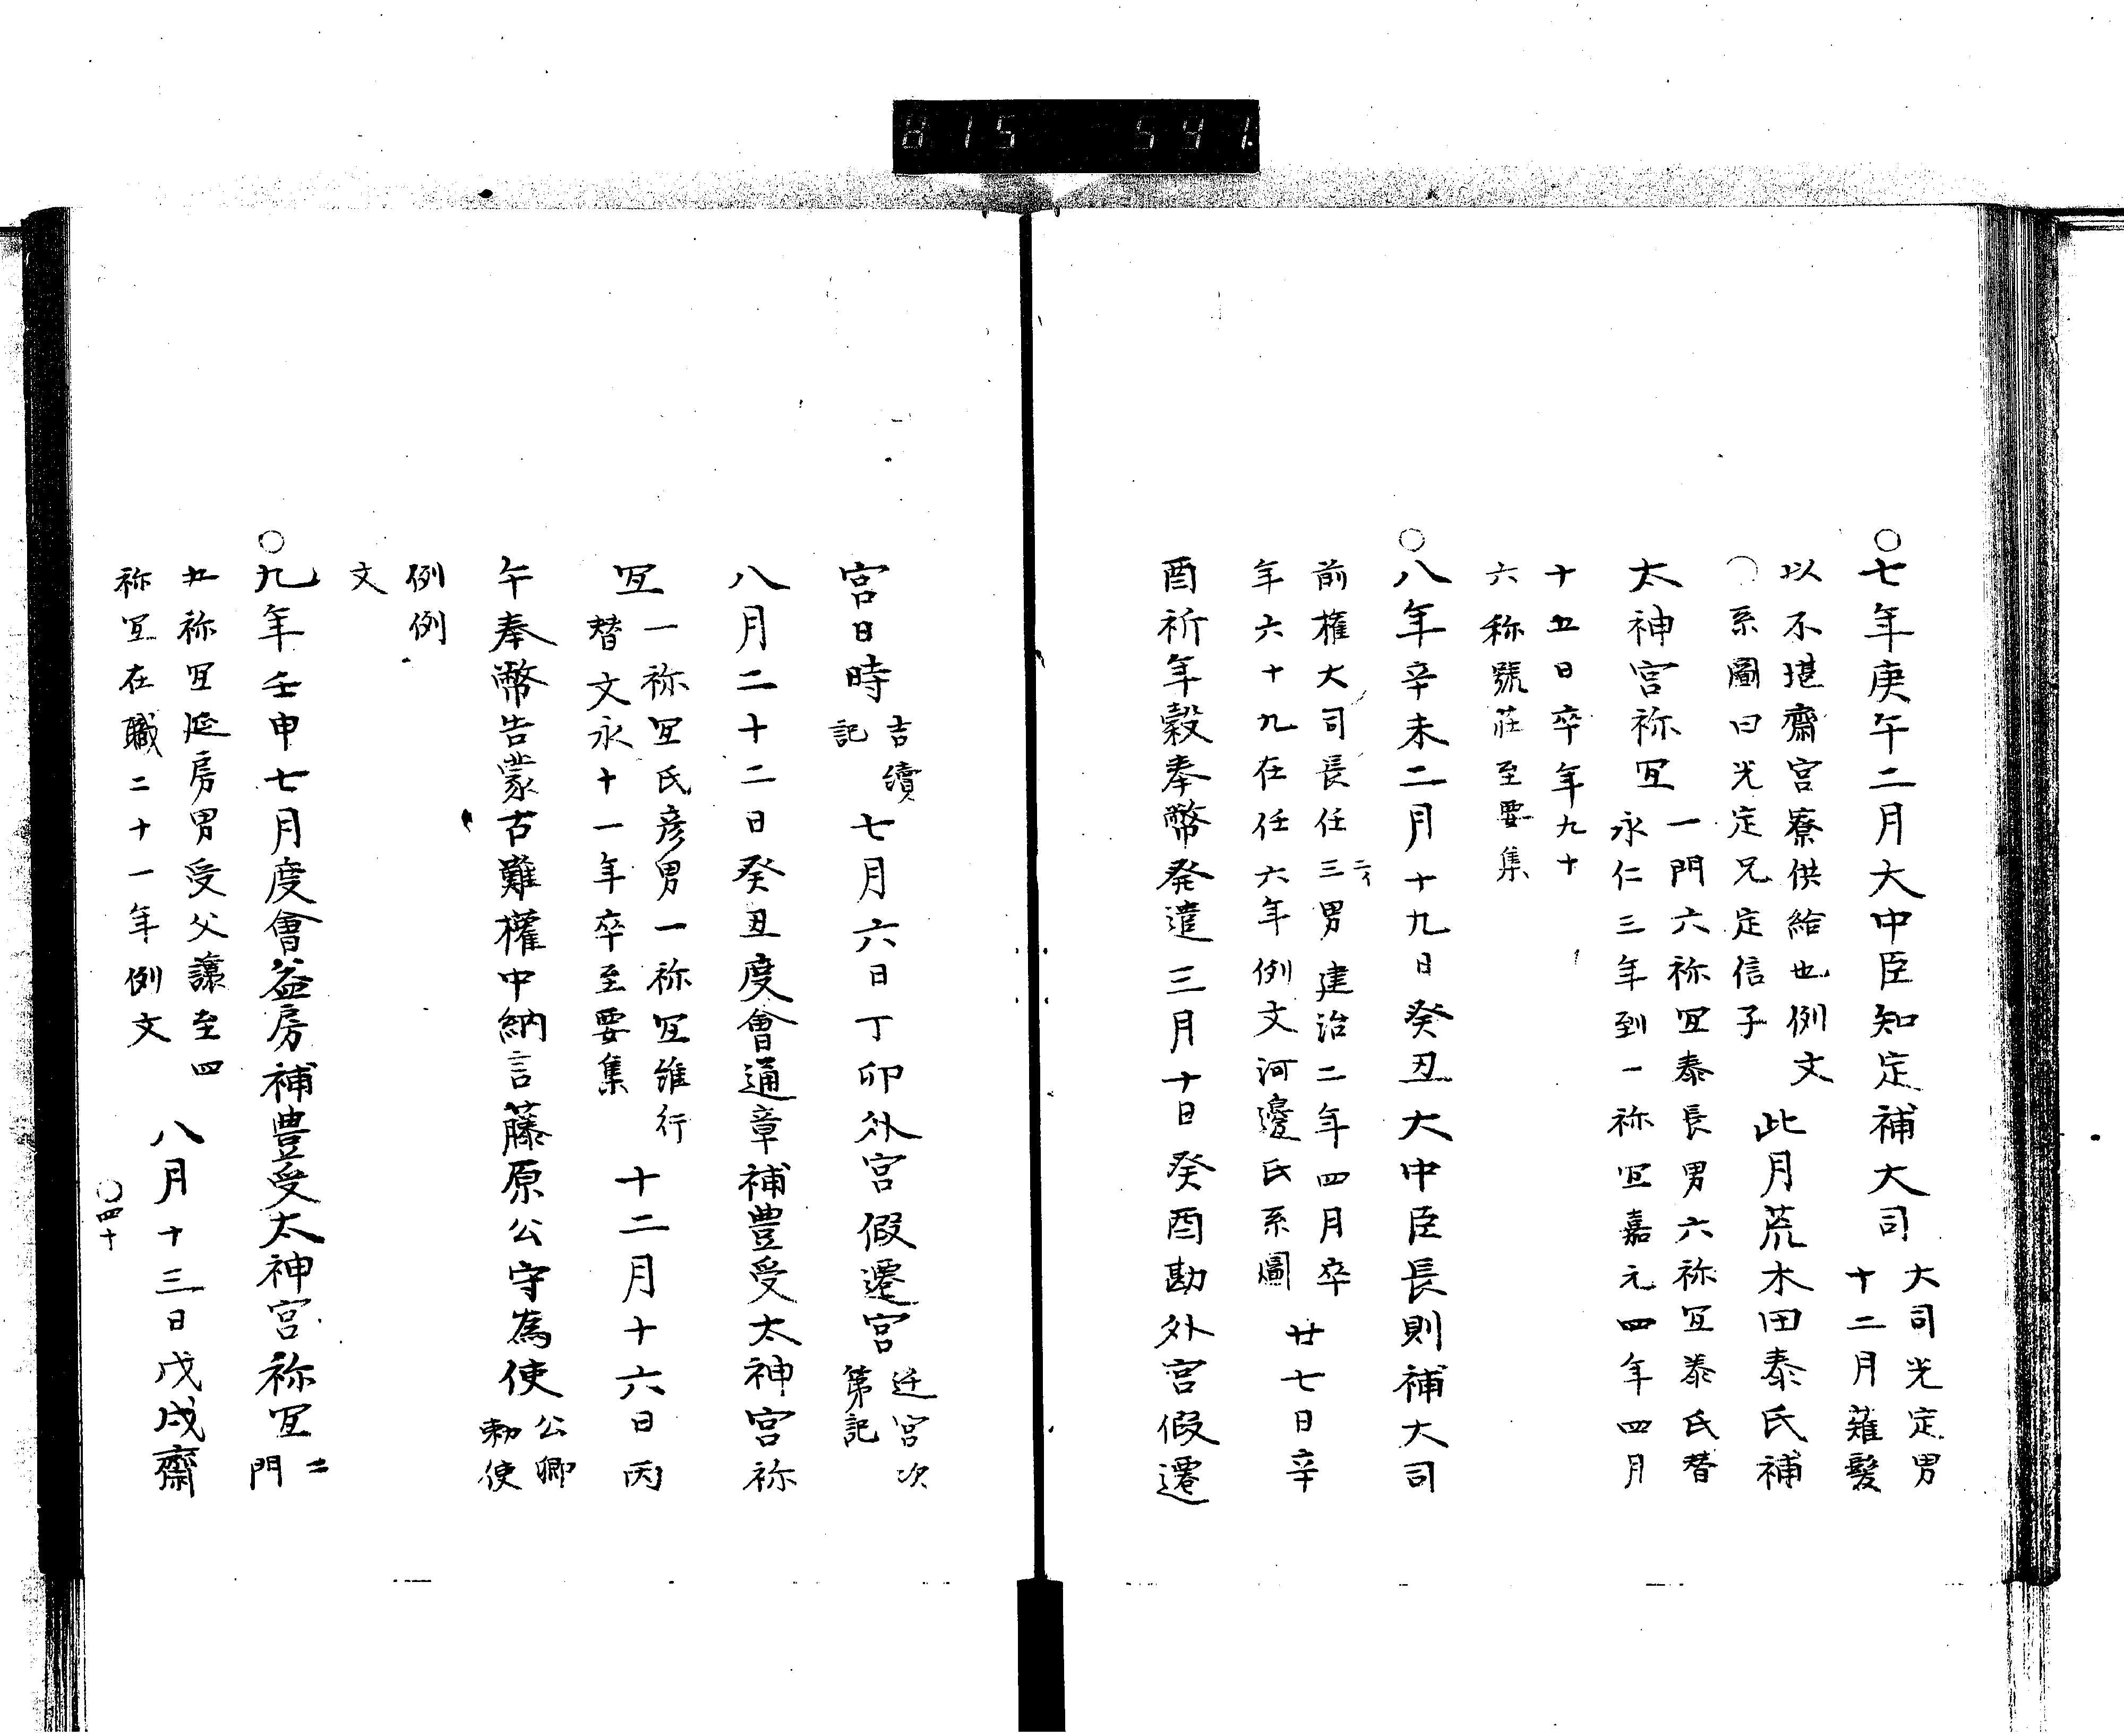 815 541.
○七年庚午二月大中臣知定補大司
大司光定男
十二月薙髮
以不堪齋宮寮供給也例文
○系圖曰光定兄定信子
此月荒木田泰氏補
太神宮祢冝
一門六祢冝泰長男六祢冝泰氏替
永仁三年到一祢冝嘉元四年四月
十五日卒年九十
六称號荘至要集
○八年辛未二月十九日癸丑大中臣長則補大司
前權大司長任三男建治二年四月卒
二イ
年六十九在任六年例文河邊氏系圖
廿七日辛
酉祈年穀奉幣発遣三月十日癸酉勘外宮假遷
宮日時
吉續
記
七月六日丁卯外宮假遷宮
迁宮次
第記
八月二十二日癸丑度會通章補豊受太神宮祢
冝
一祢冝氏彦男一祢冝維行
替文永十一年卒至要集
十二月十六日丙
午奉幣告蒙古難權中納言藤原公守為使
公卿
勅使
例例
文
○九年壬申七月度會益房補豊受太神宮祢冝
二
門
五祢冝延房男受父讓至四
祢冝在職二十一年例文
八月十三日戊戌齋
○四十